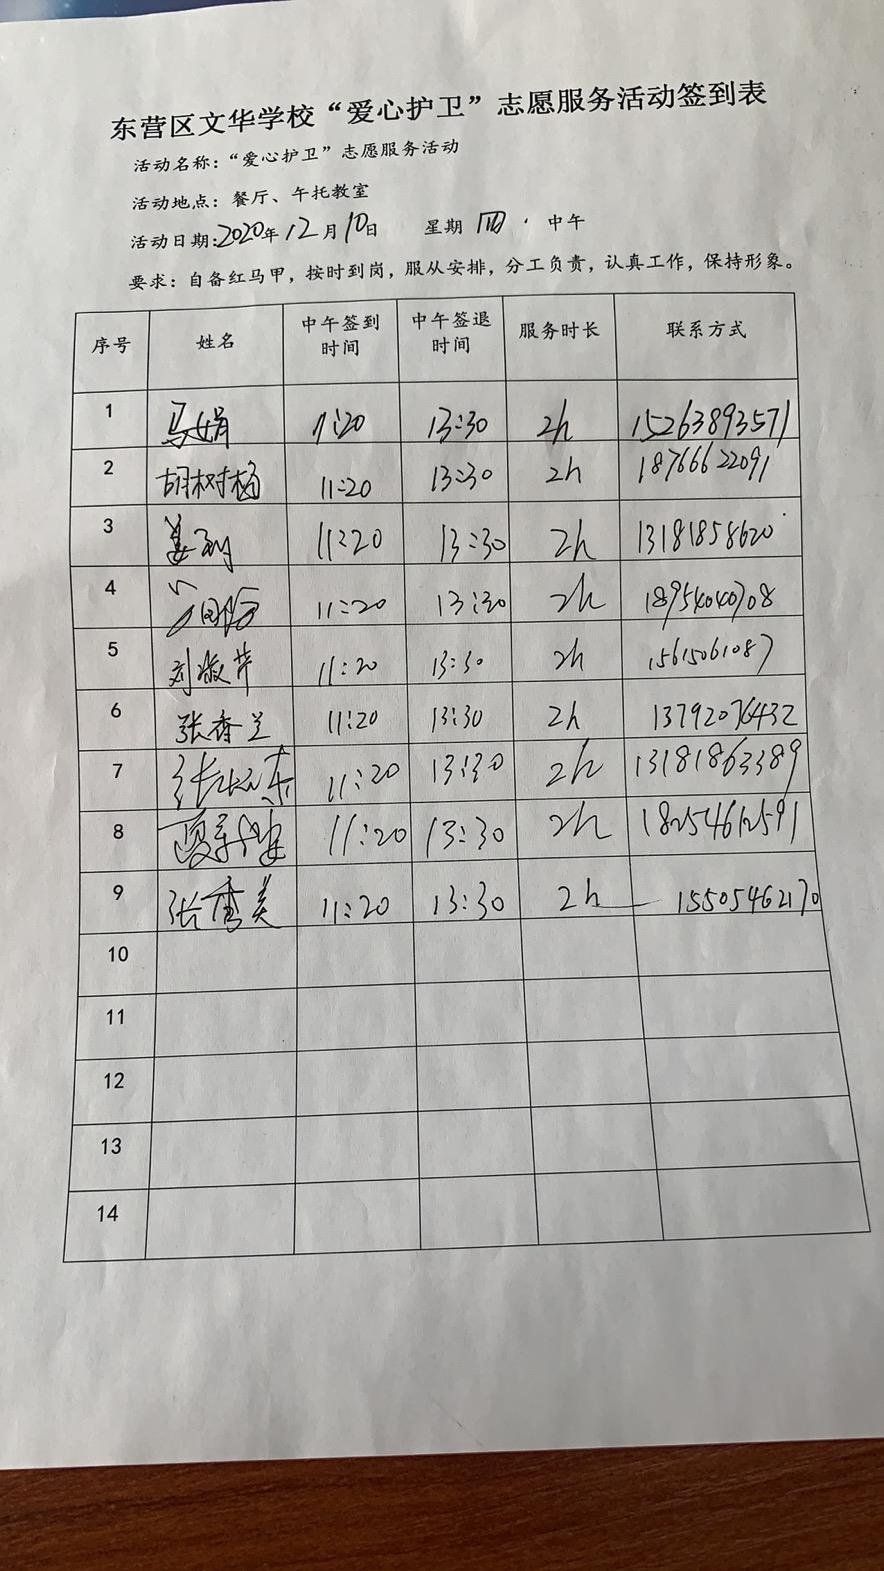 东营区文华学校“爱心护卫”志愿服务活动签到表
活动名称：“爱心护卫”志愿服务活动
活动地点：餐厅、午托教室
活动日期：2020年12月10日 星期四 中午
要求：自备红马甲，按时到岗，服从安排，分工负责，认真工作，保持形象。
序号 姓名 中午签到时间 中午签退时间 服务时长 联系方式
1 马娟 11:20 13:30 2h 15263893571
2 胡树杨 11:20 13:30 2h 18766622091
3 姜 11:20 13:30 2h 13181858620
4 11:20 13:30 2h 18954040708
5 刘淑芹 11:20 13:30 2h 15615061087
6 张香兰 11:20 13:30 2h 13792076432
7 11:20 13:30 2h 13181863389
8 11:20 13:30 2h 18254612591
9 张秀美 11:20 13:30 2h 15505462170
10
11
12
13
14